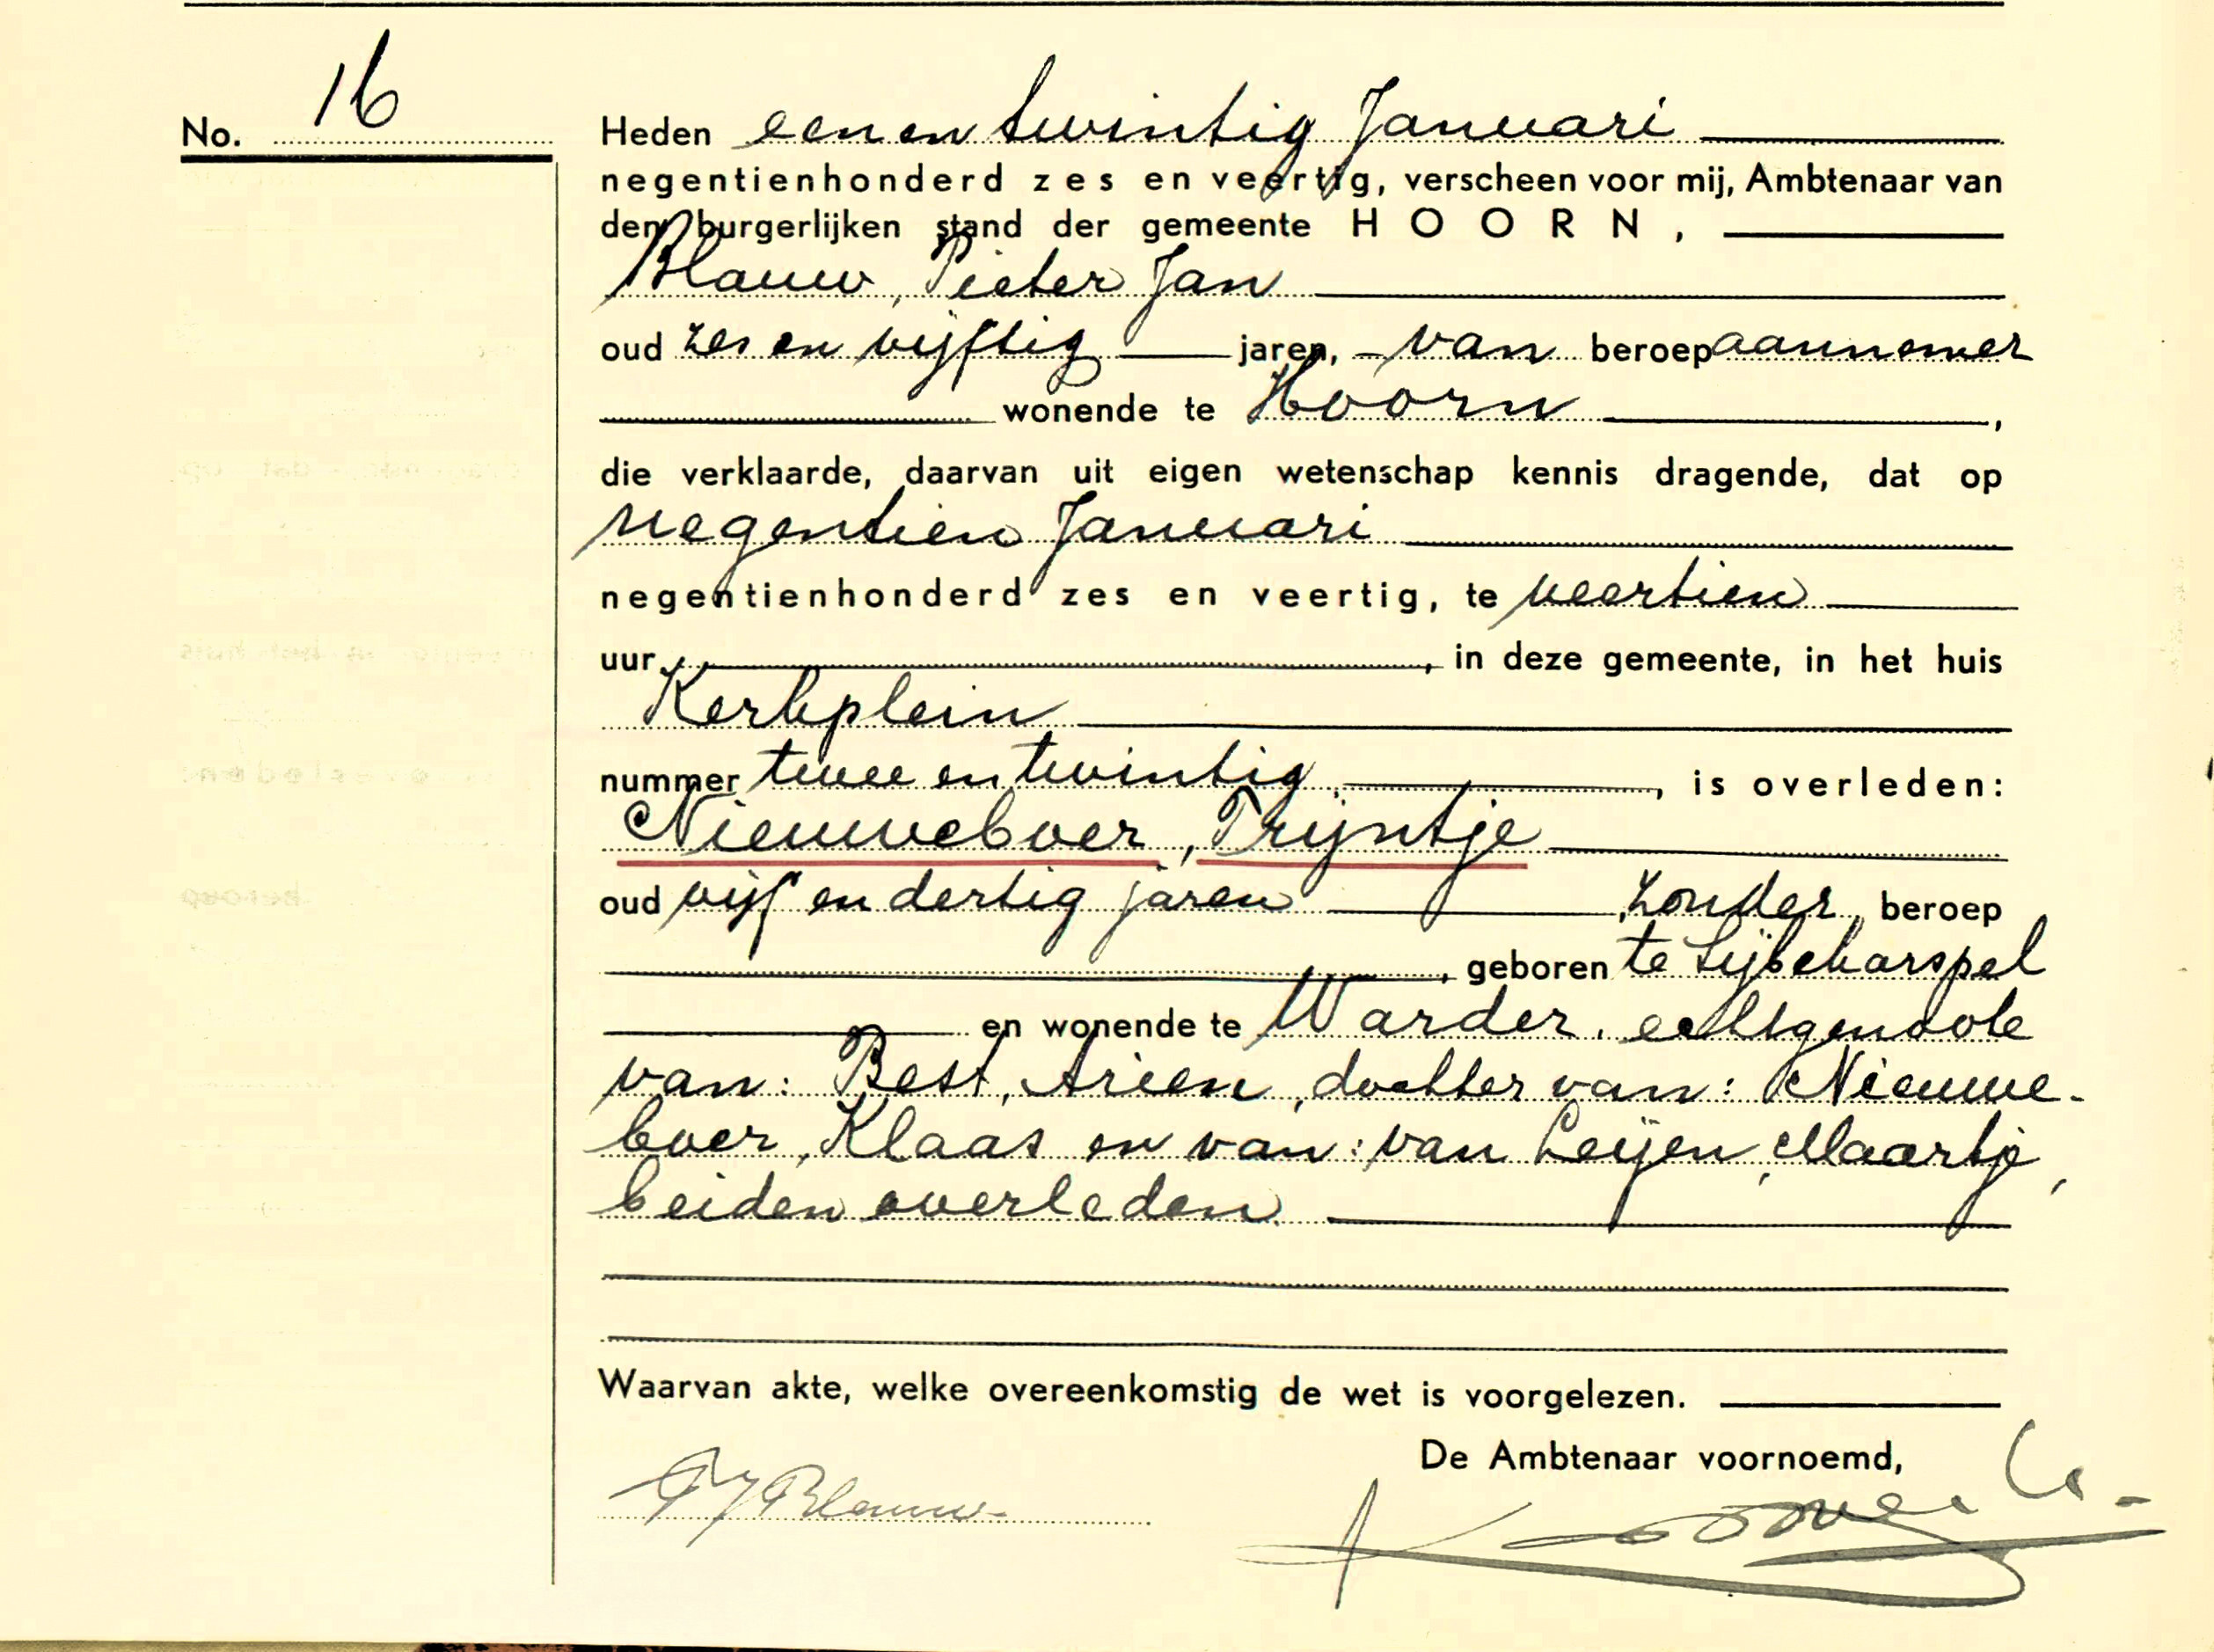 No. 16
Heden een en twintig Januari
negentienhonderd zes en veertig, verscheen voor mij, Ambtenaar van
den burgerlijken stand der gemeente HOORN,
Blauw, Pieter Jan
oud zes en vijftig jaren, van beroep aannemer
wonende te Hoorn,
die verklaarde, daarvan uit eigen wetenschap kennis dragende, dat op
negentien Januari
negentienhonderd zes en veertig, te veertien
uur, in deze gemeente, in het huis
Kerkplein
nummer twee en twintig, is overleden:
Nieuweboer, Trijntje
oud vijf en dertig jaren, zonder beroep
, geboren te Sijbekarspel
en wonende te Warder, echtgenoote
van: Best, Arien, dochter van: Nieuwe-
boer, Klaas en van: van Leijen, Maartje,
beiden overleden.
Waarvan akte, welke overeenkomstig de wet is voorgelezen.
De Ambtenaar voornoemd,
PJ Blauw.